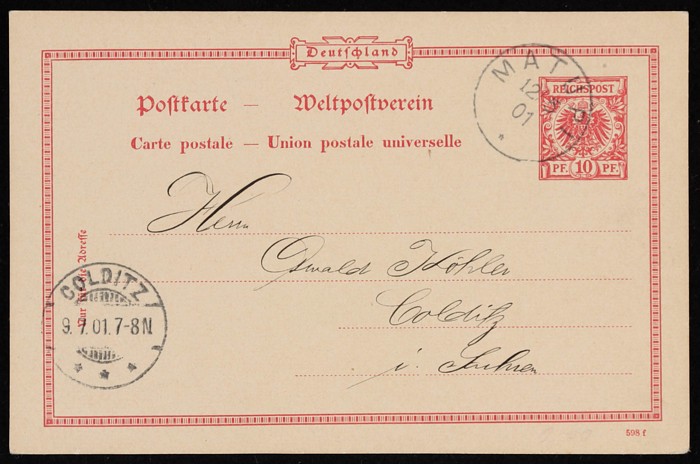 Deutschland
Postkarte — Weltpostverein
Carte postale — Union postale universelle
REICHSPOST
PF. 10 PF.
MAT
12
01
Herrn
Oswald Köhler
Colditz
i. Sachsen
Nur für die Adresse
COLDITZ
9.7.01.7-8N
598 f